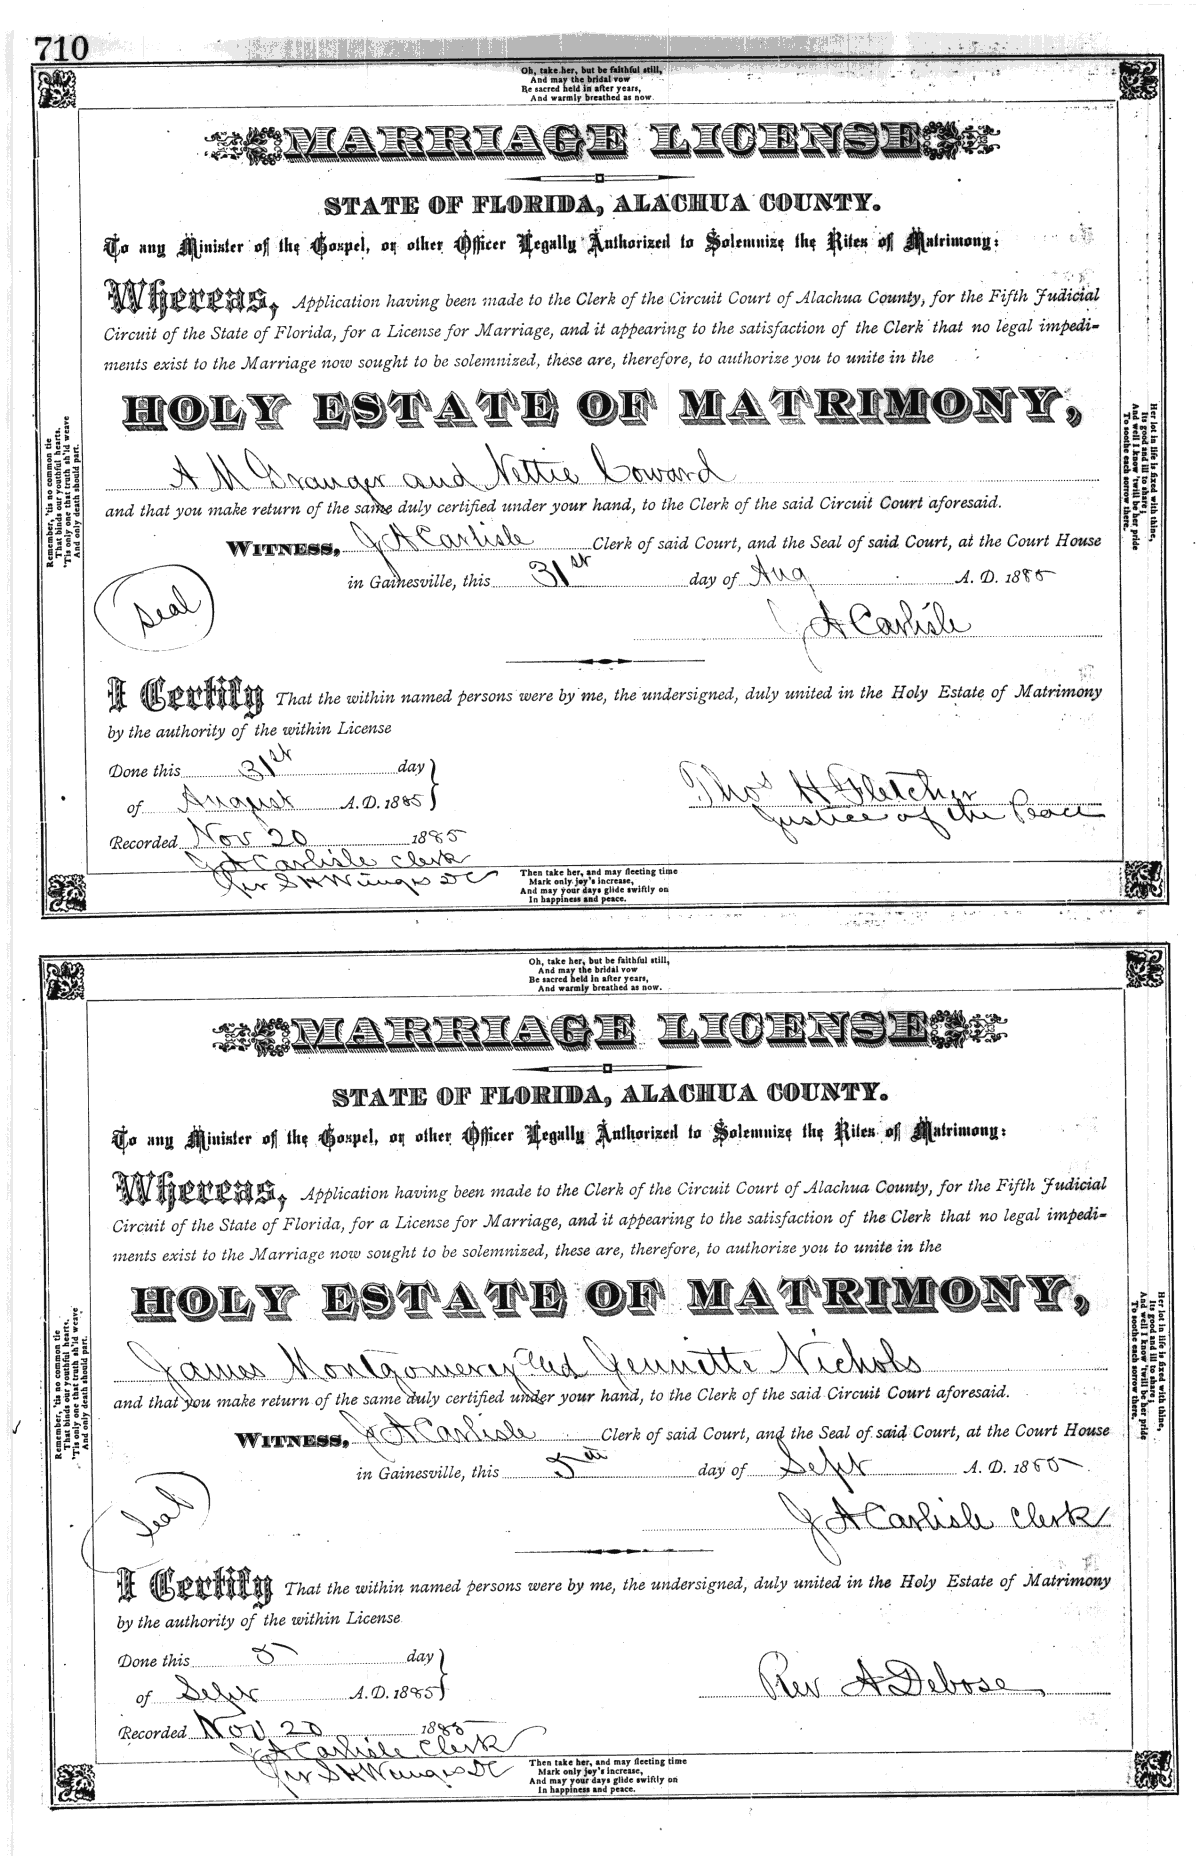 710
Oh, take her, but be faithful still,
And may the bridal vow
Be sacred held in after years,
And warmly breathed as now.
MARRIAGE LICENSE
STATE OF FLORIDA, ALACHUA COUNTY.
To any Minister of the Gospel, or other Officer Legally Authorized to Solemnize the Rites of Matrimony:
Whereas, Application having been made to the Clerk of the Circuit Court of Alachua County, for the Fifth Judicial
Circuit of the State of Florida, for a License for Marriage, and it appearing to the satisfaction of the Clerk that no legal impedi-
ments exist to the Marriage now sought to be solemnized, these are, therefore, to authorize you to unite in the
HOLY ESTATE OF MATRIMONY,
A M Granger and Nettie Coward
and that you make return of the same duly certified under your hand, to the Clerk of the said Circuit Court aforesaid.
WITNESS, J A Carlisle Clerk of said Court, and the Seal of said Court, at the Court House
in Gainesville, this 31st day of Aug A. D. 1885
Seal
J A Carlisle
I Certify That the within named persons were by me, the undersigned, duly united in the Holy Estate of Matrimony
by the authority of the within License
Done this 31st day
of August A.D. 1885
Thos H Fletcher
Justice of the Peace
Recorded Nov 20 1885
J A Carlisle Clerk
Per S H DC
Remember, 'tis no common tie
That binds our youthful hearts,
'Tis only one that truth sh'ld weave
And only death should part.
Her lot in life is fixed with thine,
Its good and ill to share;
And well I know 'twill be her pride
To soothe each sorrow there.
Then take her, and may fleeting time
Mark only joy's increase,
And may your days glide swiftly on
In happiness and peace.
Oh, take her, but be faithful still,
And may the bridal vow
Be sacred held in after years,
And warmly breathed as now.
MARRIAGE LICENSE
STATE OF FLORIDA, ALACHUA COUNTY.
To any Minister of the Gospel, or other Officer Legally Authorized to Solemnize the Rites of Matrimony:
Whereas, Application having been made to the Clerk of the Circuit Court of Alachua County, for the Fifth Judicial
Circuit of the State of Florida, for a License for Marriage, and it appearing to the satisfaction of the Clerk that no legal impedi-
ments exist to the Marriage now sought to be solemnized, these are, therefore, to authorize you to unite in the
HOLY ESTATE OF MATRIMONY,
James Montgomery and Jennette Nichols
and that you make return of the same duly certified under your hand, to the Clerk of the said Circuit Court aforesaid.
WITNESS, J A Carlisle Clerk of said Court, and the Seal of said Court, at the Court House
in Gainesville, this 5th day of Sept A. D. 1885
Seal
J A Carlisle Clerk
I Certify That the within named persons were by me, the undersigned, duly united in the Holy Estate of Matrimony
by the authority of the within License
Done this 5 day
of Sept A.D. 1885
Rev A Debose
Recorded Nov 20 1885
J A Carlisle Clerk
Per S H DC
Remember, 'tis no common tie
That binds our youthful hearts,
'Tis only one that truth sh'ld weave
And only death should part.
Her lot in life is fixed with thine,
Its good and ill to share;
And well I know 'twill be her pride
To soothe each sorrow there.
Then take her, and may fleeting time
Mark only joy's increase,
And may your days glide swiftly on
In happiness and peace.